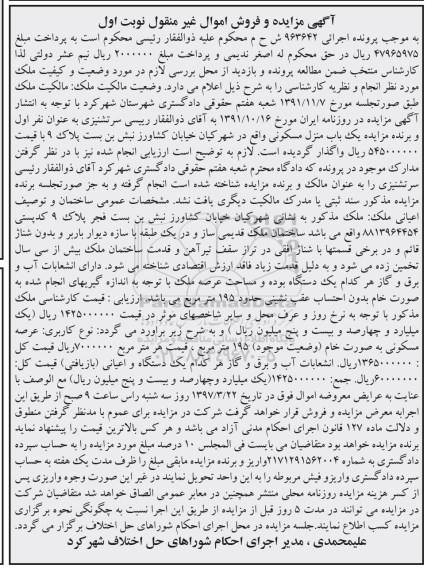 آگهی مزایده و فروش اموال غیر منقول نوبت اول
به موجب پرونده اجرائی ۹۶۳۶۴۲ ش ح م محکوم علیه ذوالفقار رئیسی محکوم است به پرداخت مبلغ
۴۷۹۶۵۹۷۵ ریال در حق محکوم له اصغر ندیمی و پرداخت مبلغ ۲۰۰۰۰۰۰ ریال نیم عشر دولتی لذا
کارشناس منتخب ضمن مطالعه پرونده و بازدید از محل بررسی لازم در مورد وضعیت و کیفیت ملک
مورد نظر انجام و نظریه کارشناسی را به شرح ذیل اعلام می دارد. وضعیت مالکیت ملک: مالکیت ملک
طبق صورتجلسه مورخ ۱۳۹۱/۱۱/۷ شعبه هفتم حقوقی دادگستری شهرستان شهرکرد با توجه به انتشار
آگهی مزایده در روزنامه ایران مورخ ۱۳۹۱/۱۰/۱۶ به آقای ذوالفقار رییسی سرتشنیزی به عنوان نفر اول
و برنده مزایده یک باب منزل مسکونی واقع در شهرکیان خیابان کشاورز نبش بن بست پلاک ۹ با قیمت
۵۴۵۰۰۰۰۰۰ ریال واگذار گردیده است. لازم به توضیح است ارزیابی انجام شده نیز با در نظر گرفتن
مدارک موجود در پرونده که دادگاه محترم شعبه هفتم حقوقی دادگستری شهرکرد آقای ذوالفقار رئیسی
سرتشنیزی را به عنوان مالک و برنده مزایده شناخته شده است انجام گرفته و به جز صورتجلسه برنده
مزایده مذکور سند ثبتی یا مدرک مالکیت دیگری یافت نشد. مشخصات عمومی ساختمان و توصیف
اعیانی ملک: ملک مذکور به نشانی شهرکیان خیابان کشاورز نبش بن بست فجر پلاک ۹ کدپستی
۸۸۱۳۹۶۴۴۵۴ واقع می باشد ساختمان ملک قدیمی ساز و در یک طبقه با سازه دیوار باربر و بدون شناژ
قائم و در برخی قسمتها با شناژ افقی در تراز سقف تیرآهن و قدمت ساختمان ملک بیش از سی سال
تخمین زده می شود و به دلیل قدمت زیاد فاقد ارزش اقتصادی شناخته می شود. دارای انشعابات آب و
برق و گاز هر کدام یک دستگاه بوده و مساحت عرصه ملک با توجه به اندازه گیریهای انجام شده به
صورت خام بدون احتساب عقب نشینی حدود ۱۹۵ متر مربع می باشد. ارزیابی : قیمت کارشناسی ملک
مذکور با توجه به نرخ روز و عرف محل و سایر شاخصهای موثر در قیمت ۱۴۲۵۰۰۰۰۰۰ ریال (یک
میلیارد و چهارصد و بیست و پنج میلیون ریال ) و به شرح زیر برآورد می گردد: نوع کاربری: عرصه
مسکونی به صورت خام (وضعیت موجود) ۱۹۵ مترمربع ، قیمت هر متر مربع ۷۰۰۰۰۰۰ریال قیمت کل
: ۱۳۶۵۰۰۰۰۰۰ریال. انشعابات آب و برق و گاز هر کدام یک دستگاه و اعیانی (بازیافتی) قیمت کل:
۶۰۰۰۰۰۰۰ریال. جمع: ۱۴۲۵۰۰۰۰۰۰(یک میلیارد وچهارصد و بیست و پنج میلیون ریال) مع الوصف با
عنایت به عرایض معروضه اموال فوق در تاریخ ۱۳۹۷/۳/۲۲ روز سه شنبه راس ساعت ۹ صبح از طریق این
اجرابه معرض مزایده و فروش قرار خواهد گرفت شرکت در مزایده برای عموم با مدنظر گرفتن منطوق
و دلالت ماده ۱۲۷ قانون اجرای احکام مدنی آزاد می باشد و هر کس بالاترین قیمت را پیشنهاد نماید
برنده مزایده خواهد بود متقاضیان می بایست فی المجلس ۱۰ درصد مبلغ مورد مزایده را به حساب سپرده
دادگستری به شماره ۲۱۷۱۲۹۱۵۶۲۰۰۴واریز و برنده مزایده مابقی مبلغ را ظرف مدت یک هفته به حساب
سپرده دادگستری واریزو فیش مربوطه را به این واحد تحویل نمایند در غیر این صورت وجوه واریزی پس
از کسر هزینه مزایده روزنامه محلی منتشر همچنین در معابر عمومی الصاق خواهد شد متقاضیان شرکت
در مزایده می توانند در مدت ۵ روز قبل از مزایده از طریق این اجرا نسبت به چگونگی نحوه برگزاری
مزایده کسب اطلاع نمایند.جلسه مزایده در محل اجرای احکام شوراهای حل اختلاف برگزار می گردد.
علیمحمدی ، مدیر اجرای احکام شوراهای حل اختلاف شهرکرد